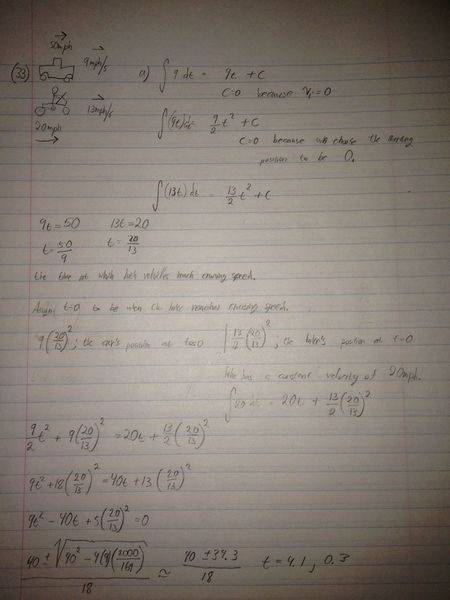 50mph
(33) 9mph/s a) ∫ 9 dt = 9t + C
C=0 because V₁=0
13mph/s ∫(9t)dt = 9/2 t² + C
20mph C=0 because we choose the starting
position to be 0.
∫(13t)dt = 13/2 t² + C
9t=50 13t=20
t=50/9 t=20/13
the time at which both vehicles reach cruising speed.
Assign t=0 to be when the biker reaches cruising speed.
9(20/13)²; the car's position at t=0 | 13/2 (20/13)², the biker's position at t=0
bike has a constant velocity of 20mph.
∫20 dt = 20t + 13/2 (20/13)²
9/2 t² + 9(20/13)² = 20t + 13/2 (20/13)²
9t² + 18(20/13)² = 40t + 13(20/13)²
9t² - 40t + 5(20/13)² = 0
40 ± √(40² - 4(9)(2000/169)) / 18 ≃ 40 ± 34.3 / 18 t = 4.1, 0.3